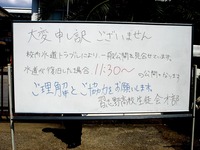 大変 申し訳 ございません
校内水道トラブルにより、一般公開を見合せています。
水道が復旧した場合 11:30〜 の公開となります
ご理解とご協力をお願いします。
高校生徒会本部